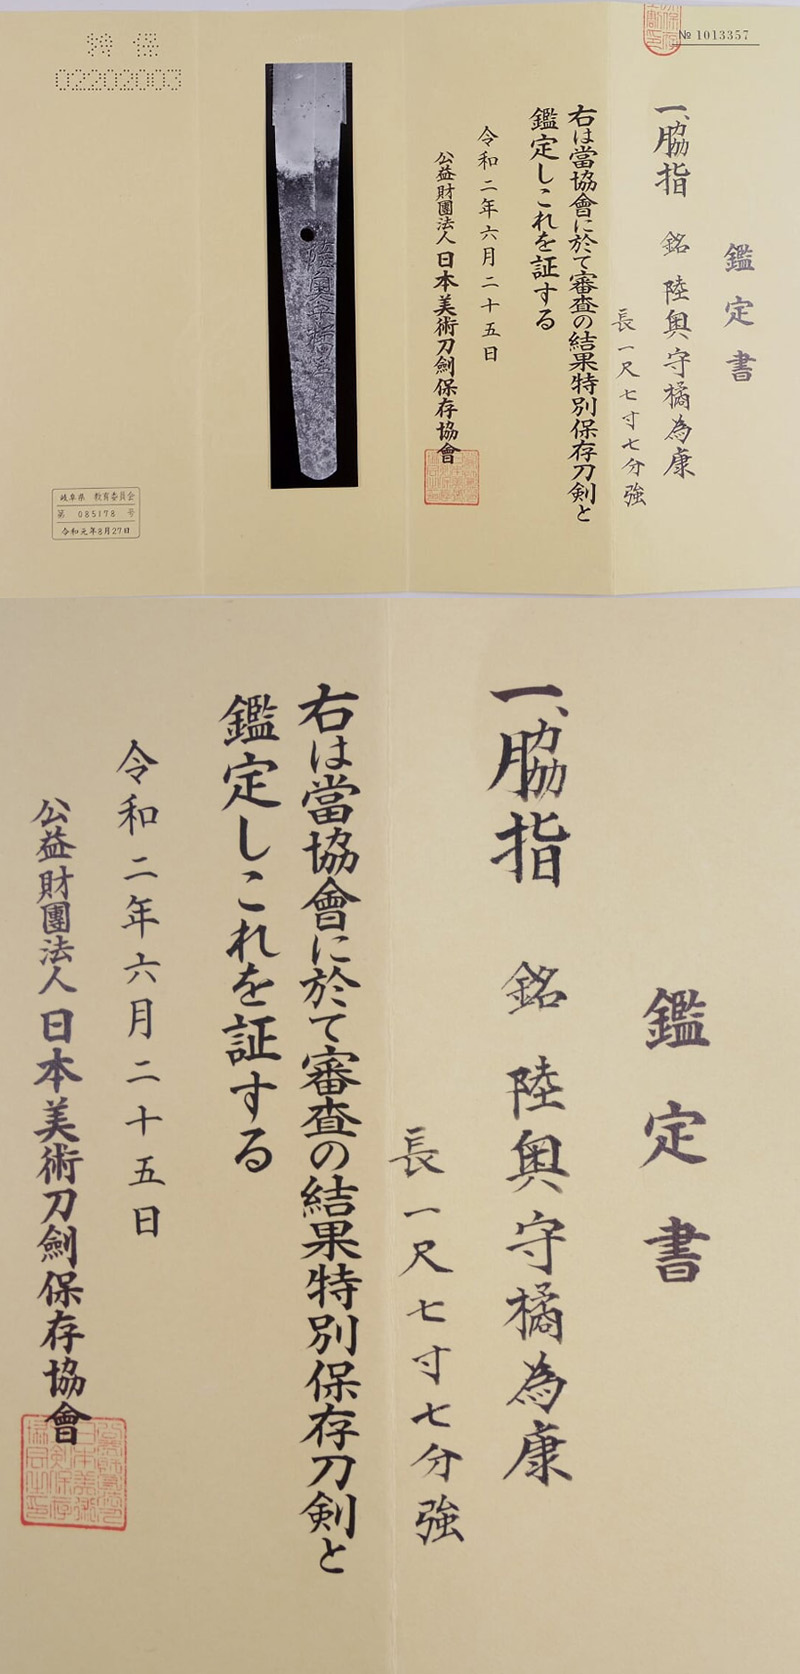 № 1013357
鑑定書
一、脇指 銘 陸奥守橘為康
長一尺七寸七分強
右は當協會に於て審査の結果特別保存刀剣と
鑑定しこれを証する
令和二年六月二十五日
公益財團法人日本美術刀劍保存協會
陸奥守橘為
特保
02202003
岐阜県 教育委員会
第 085178 号
令和元年8月27日
鑑定書
一、脇指 銘 陸奥守橘為康
長一尺七寸七分強
右は當協會に於て審査の結果特別保存刀剣と
鑑定しこれを証する
令和二年六月二十五日
公益財團法人日本美術刀劍保存協會